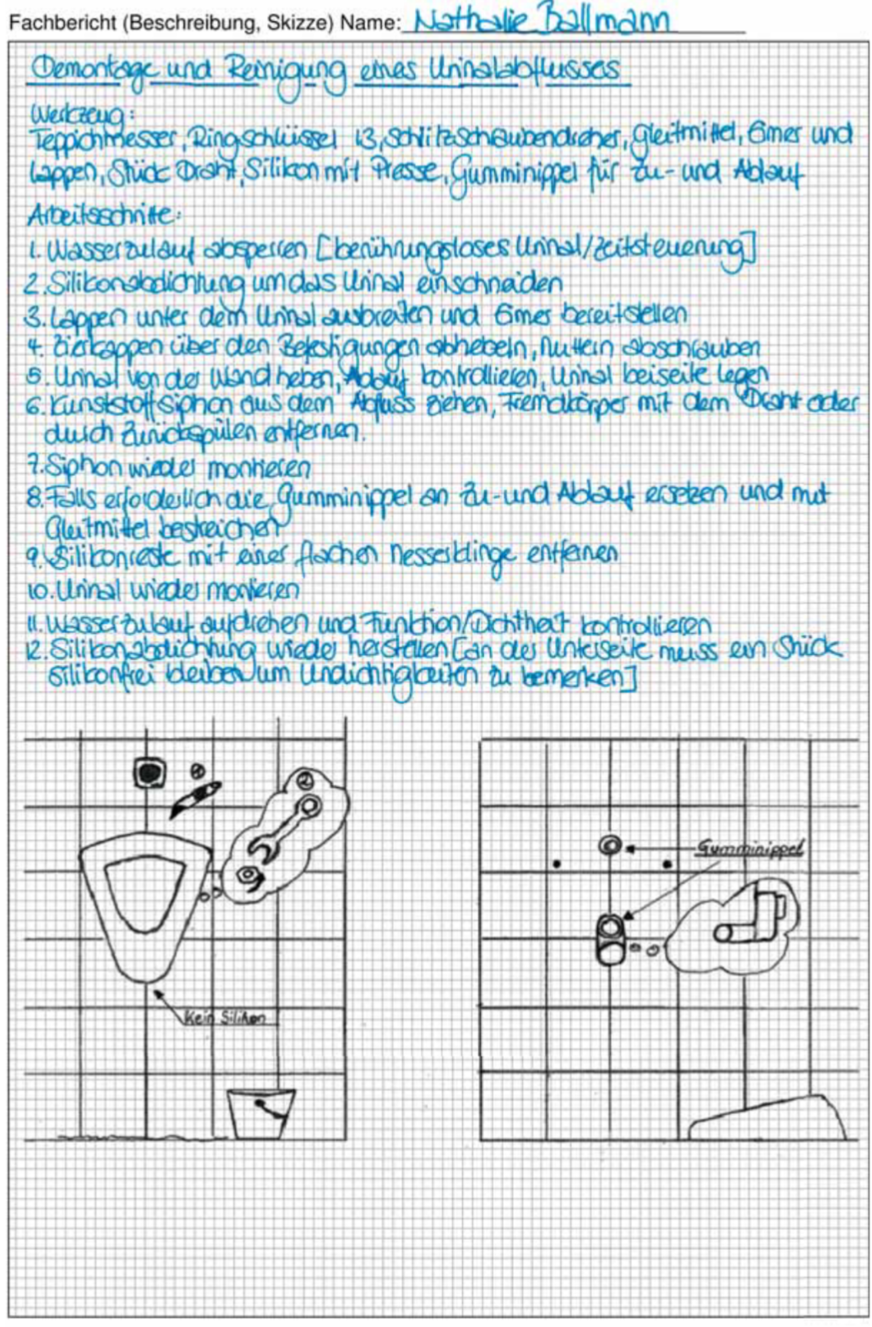 Fachbericht (Beschreibung, Skizze) Name: Nathalie Ballmann
Demontage und Reinigung eines Urinalabflusses
Werkzeug:
Teppichmesser, Ringschlüssel 13, Schlitzschraubendreher, Gleitmittel, Eimer und
Lappen, Stück Draht, Silikon mit Presse, Gumminippel für Zu- und Ablauf
Arbeitsschritte:
1. Wasserzulauf absperren [berührungsloses Urinal/Zeitsteuerung]
2. Silikonabdichtung um das Urinal einschneiden
3. Lappen unter dem Urinal ausbreiten und Eimer bereitstellen
4. Zierkappen über den Befestigungen abhebeln, Muttern abschrauben
5. Urinal von der Wand heben, Ablauf kontrollieren, Urinal beiseite legen
6. Kunststoffsiphon aus dem Abfluss ziehen, Fremdkörper mit dem Draht oder
durch Zurückspülen entfernen.
7. Siphon wieder montieren
8. Falls erforderlich die Gumminippel an Zu- und Ablauf ersetzen und mit
Gleitmittel bestreichen
9. Silikonreste mit einer flachen Messerklinge entfernen
10. Urinal wieder montieren
11. Wasserzulauf aufdrehen und Funktion/Dichtheit kontrollieren
12. Silikonabdichtung wieder herstellen [an der Unterseite muss ein Stück
silikonfrei bleiben um Undichtigkeiten zu bemerken]
②
Gumminippel
Kein Silikon